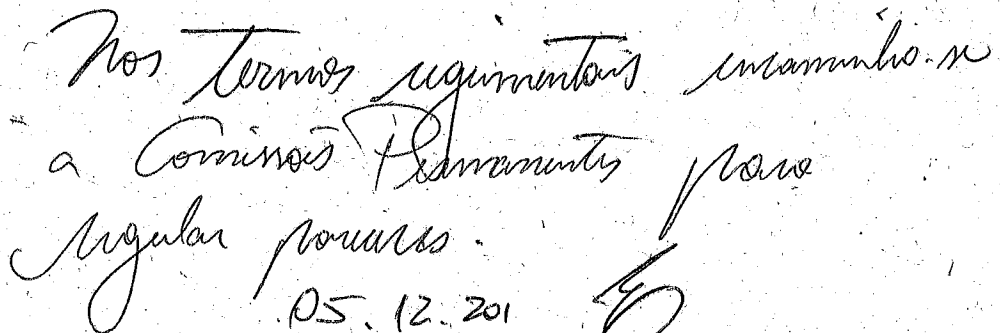 Nos termos regimentais encaminho-se
a Comissões Permanentes para
regular pareceres.
05.12.201